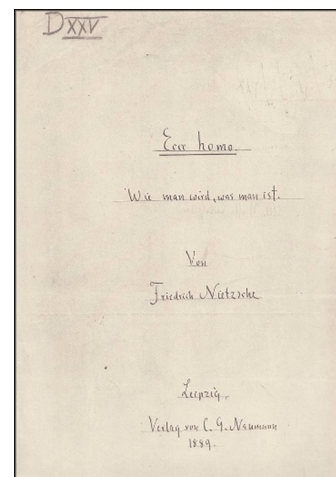 D XXV
Ecce homo.
Wie man wird, was man ist.
Von
Friedrich Nietzsche
Leipzig.
Verlag von C. G. Naumann
1889.